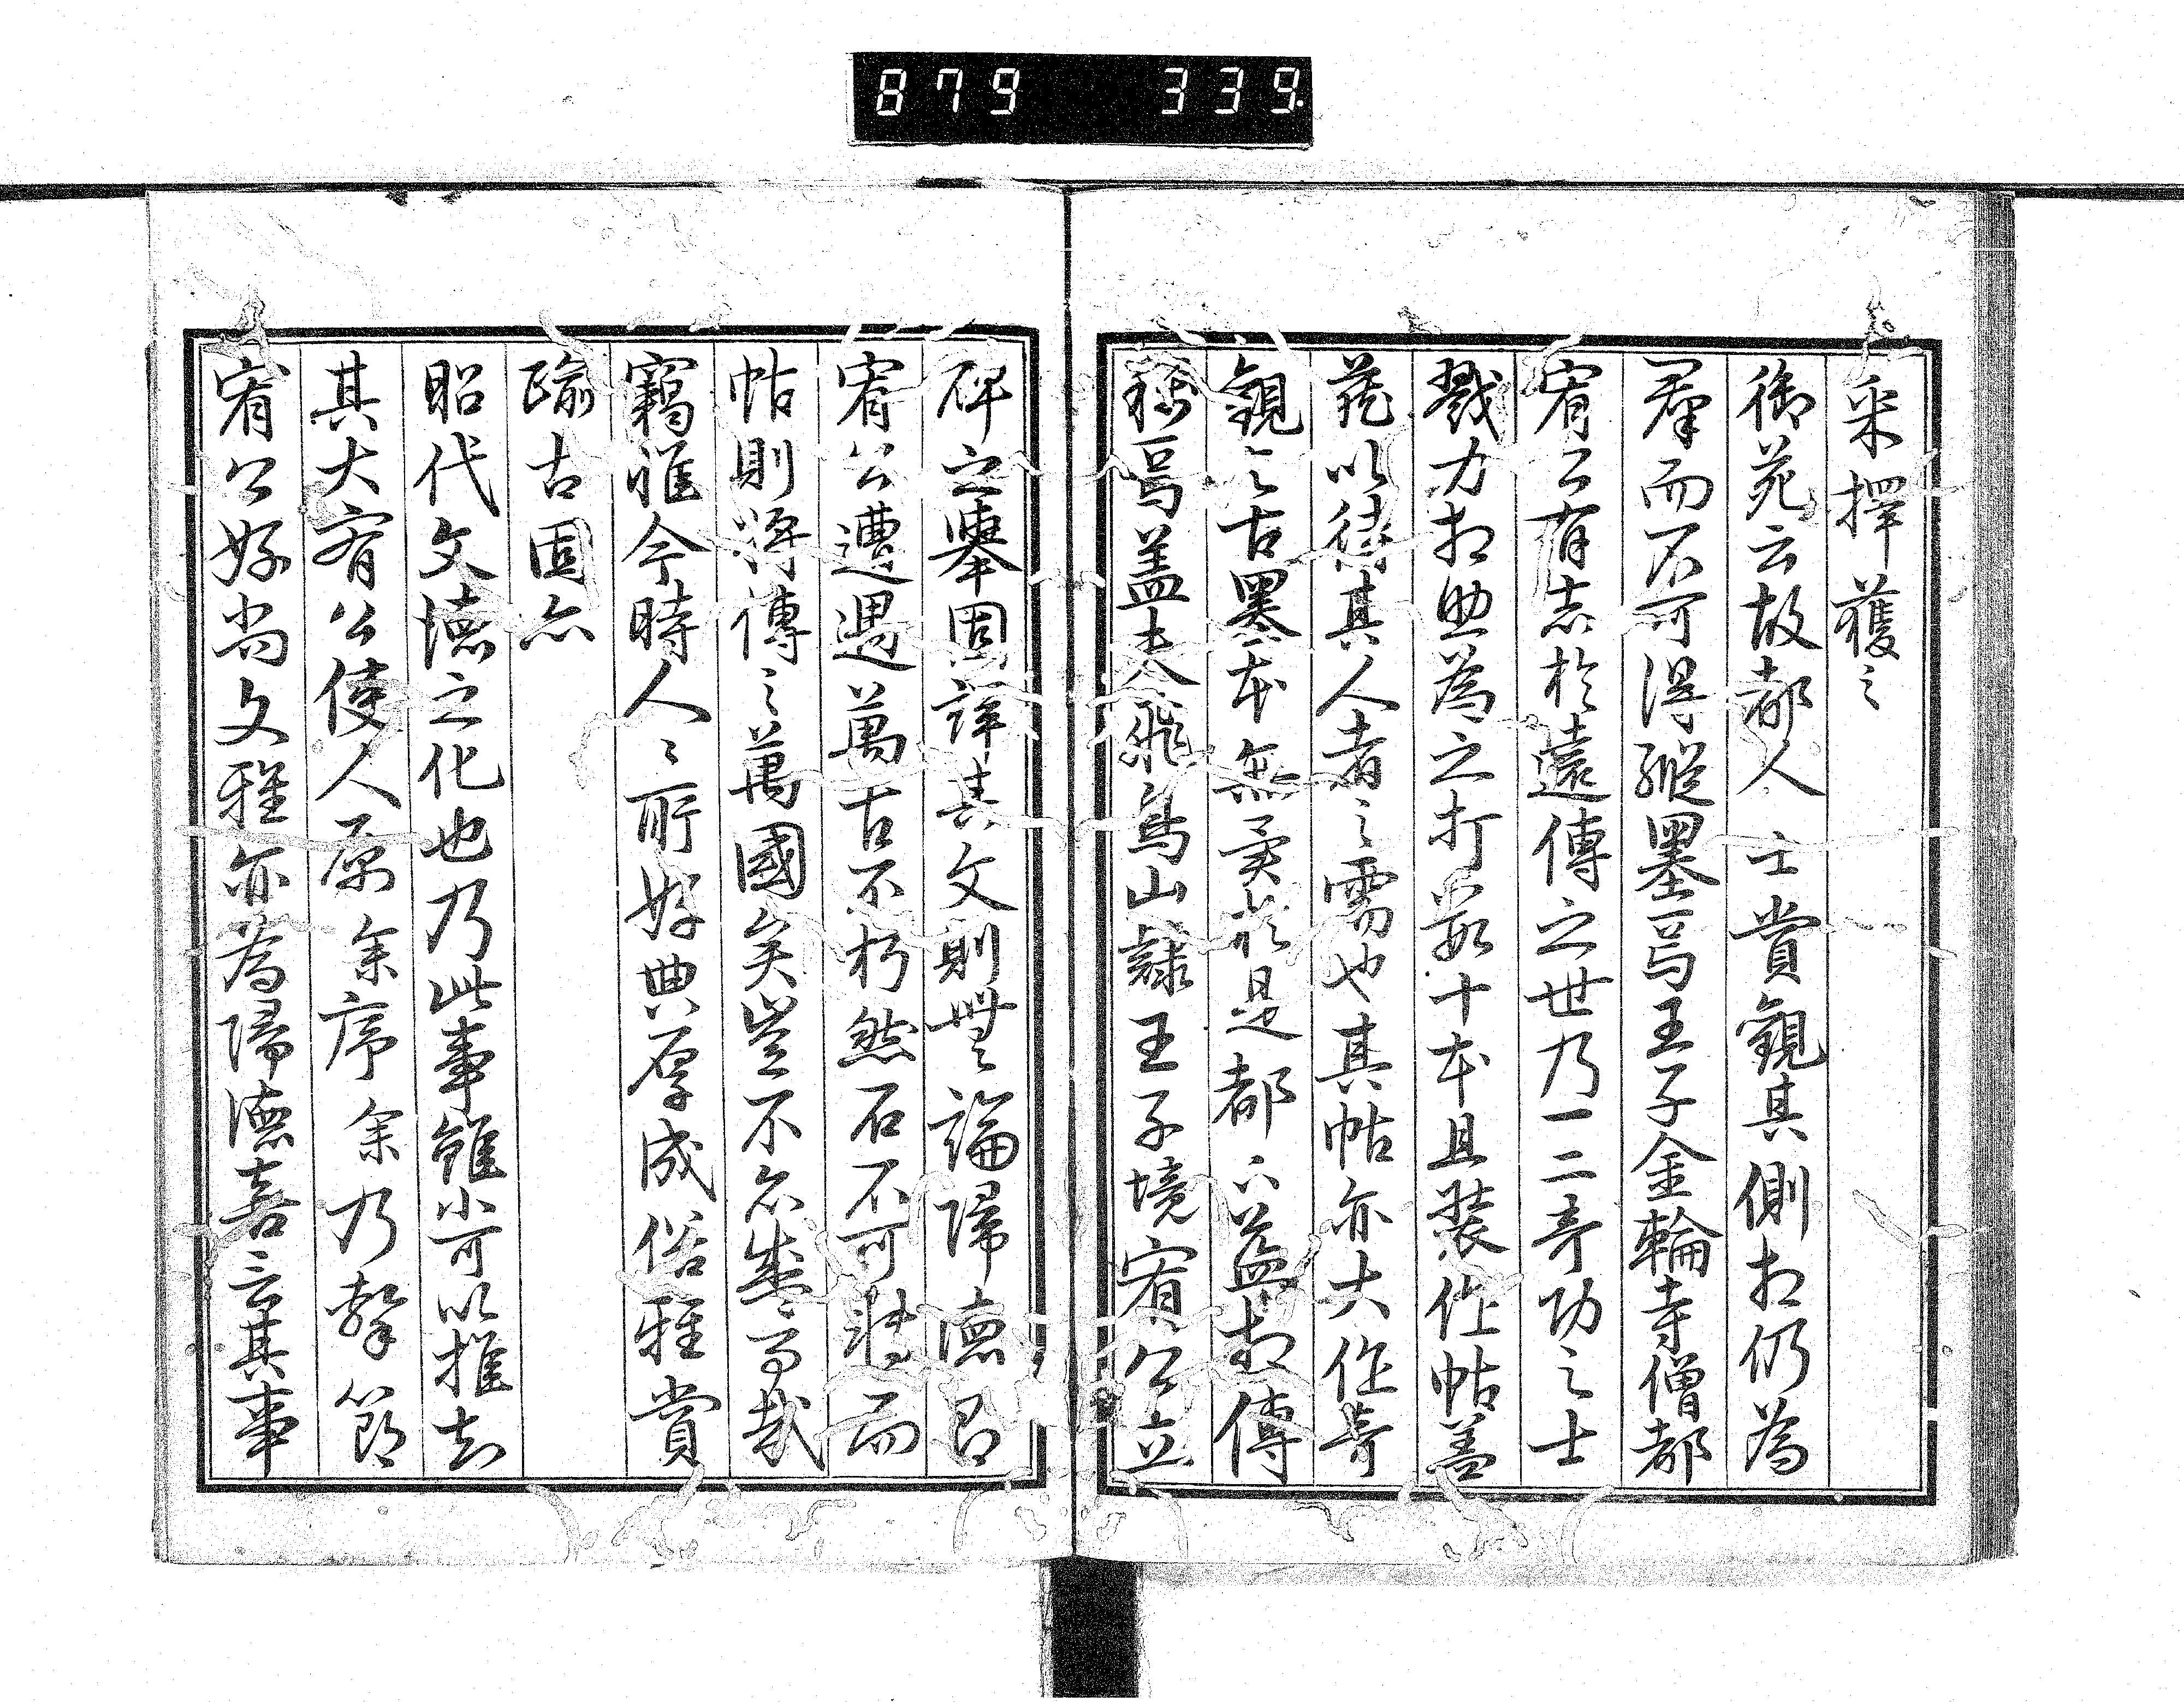 879 339
采擇獲之
御苑云故都人士賞觀其側相仍為
群而不可得縱墨焉王子金輪寺僧都
宥公有志於遠傳之世乃一二奇功之士
戮力相助為之打數十本且裝作帖蓋
藏以待其人者之需也其帖亦大作奇
觀之古墨本無是都下益相傳
稱焉蓋夫飛鳥山隸王子境宥公立
碑之舉固詳其文則無論歸德君
宥公遭遇萬古不朽然石不可将而
帖則將傳之萬國矣豈不亦盛事哉
竊惟今時人之所好典厚成俗雅賞
踰古固亦
昭代文德之化也乃此事雖小可以推知
其大宥公使人屬余序余乃擊節
宥公好尚文雅亦為歸德喜言其事